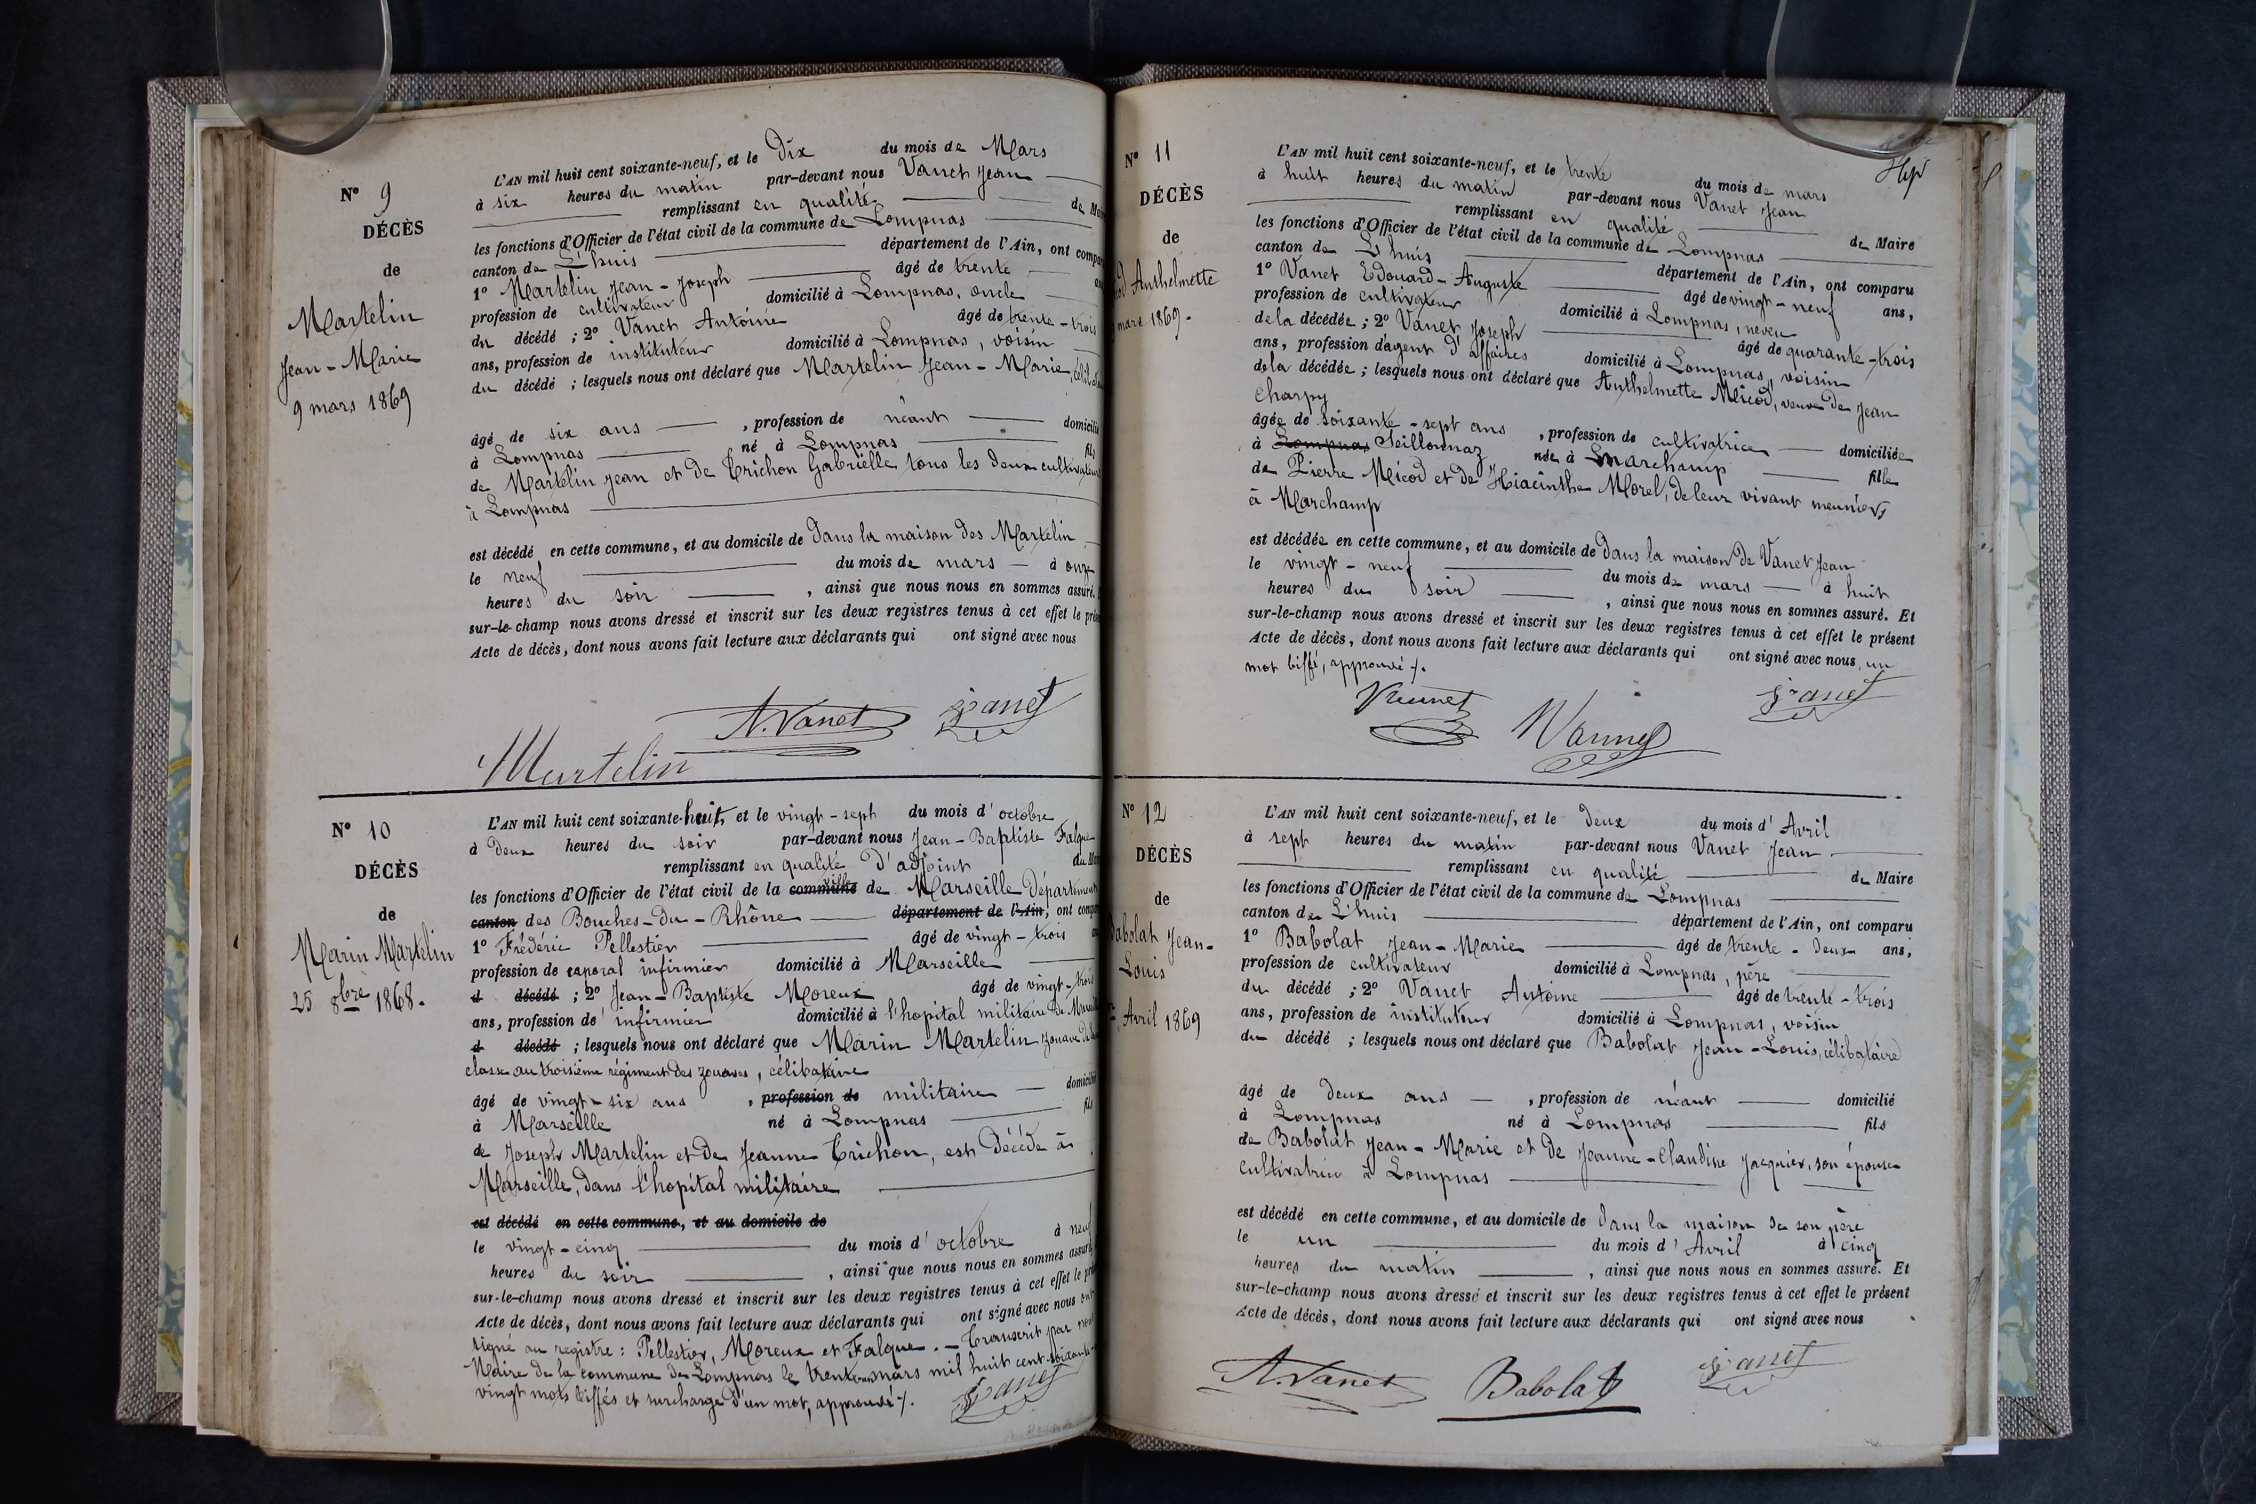 N° 9
DÉCÈS
de
Martelin
Jean-Marie
9 mars 1869
L'AN mil huit cent soixante-neuf, et le Dix du mois de Mars
à six heures du matin par-devant nous Vanet Jean
remplissant en qualité de Maire
les fonctions d'Officier de l'état civil de la commune de Lompnas
canton de L'huis département de l'Ain, ont comparu
1° Martelin Jean-Joseph âgé de trente ans
profession de cultivateur domicilié à Lompnas, oncle
du décédé ; 2° Vanet Antoine âgé de trente-trois
ans, profession de instituteur domicilié à Lompnas, voisin
du décédé ; lesquels nous ont déclaré que Martelin Jean-Marie,
âgé de six ans, profession de néant domicilié
à Lompnas né à Lompnas fils
de Martelin Jean et de Trichon Gabrielle tous les deux cultivateurs
à Lompnas
est décédé en cette commune, et au domicile de Dans la maison des Martelin
le neuf du mois de mars à onze
heures du soir, ainsi que nous nous en sommes assuré.
sur-le-champ nous avons dressé et inscrit sur les deux registres tenus à cet effet le présent
Acte de décès, dont nous avons fait lecture aux déclarants qui ont signé avec nous
A. Vanet Vanet
Martelin
N° 10
DÉCÈS
de
Marin Martelin
25 8bre 1868.
L'AN mil huit cent soixante-huit, et le vingt-sept du mois d'octobre
à Deux heures du soir par-devant nous Jean-Baptiste Falque
remplissant en qualité d'adjoint du Maire
les fonctions d'Officier de l'état civil de la commune ville de Marseille Département
canton des Bouches-Du-Rhône département de l'Ain, ont comparu
1° Frédéric Pellestier âgé de vingt-trois ans
profession de caporal infirmier domicilié à Marseille
d décédé ; 2° Jean-Baptiste Moreux âgé de vingt-trois
ans, profession de infirmier domicilié à l'hopital militaire de Marseille
d décédé ; lesquels nous ont déclaré que Marin Martelin zouave de
classe au troisième régiment des zouaves, célibataire
âgé de vingt-six ans, profession de militaire domicilié
à Marseille né à Lompnas fils
de Joseph Martelin et de Jeanne Trichon, est Décédé à
Marseille, dans l'hopital militaire
est décédé en cette commune, et au domicile de
le vingt-cinq du mois d'octobre à neuf
heures du soir, ainsi que nous nous en sommes assuré.
sur-le-champ nous avons dressé et inscrit sur les deux registres tenus à cet effet le présent
Acte de décès, dont nous avons fait lecture aux déclarants qui ont signé avec nous ont
signé au registre : Pellestier, Moreux et Falque. - Transcrit par nous
Maire de la commune de Lompnas le trente mars mil huit cent soixante
vingt mots biffés et surcharge d'un mot, approuvé /. Vanet
N° 11
DÉCÈS
de
Anthelmette
mars 1869.
L'AN mil huit cent soixante-neuf, et le trente du mois de mars
à huit heures du matin par-devant nous Vanet Jean
remplissant en qualité de Maire
les fonctions d'Officier de l'état civil de la commune de Lompnas
canton de L'huis département de l'Ain, ont comparu
1° Vanet Edouard-Auguste âgé de vingt-neuf ans,
profession de cultivateur domicilié à Lompnas, neveu
de la décédée ; 2° Vanet Joseph âgé de quarante-trois
ans, profession d'agent d'affaires domicilié à Lompnas, voisin
de la décédée ; lesquels nous ont déclaré que Anthelmette Micod, veuve de Jean
Charpy
âgée de soixante-sept ans, profession de cultivatrice domiciliée
à Lompnas Seillonnaz née à Marchamp fille
de Pierre Micod et de Hiacinthe Morel, de leur vivant meuniers
à Marchamp
est décédée en cette commune, et au domicile de Dans la maison de Vanet Jean
le vingt-neuf du mois de mars à huit
heures du soir, ainsi que nous nous en sommes assuré. Et
sur-le-champ nous avons dressé et inscrit sur les deux registres tenus à cet effet le présent
Acte de décès, dont nous avons fait lecture aux déclarants qui ont signé avec nous, un
mot biffé, approuvé /.
Vanet Vanet Vanet
N° 12
DÉCÈS
de
Babolat Jean-
Louis
Avril 1869
L'AN mil huit cent soixante-neuf, et le deux du mois d'Avril
à sept heures du matin par-devant nous Vanet Jean
remplissant en qualité de Maire
les fonctions d'Officier de l'état civil de la commune de Lompnas
canton de L'huis département de l'Ain, ont comparu
1° Babolat Jean-Marie âgé de trente-deux ans,
profession de cultivateur domicilié à Lompnas, père
du décédé ; 2° Vanet Antoine âgé de trente-trois
ans, profession de instituteur domicilié à Lompnas, voisin
du décédé ; lesquels nous ont déclaré que Babolat Jean-Louis, célibataire
âgé de deux ans, profession de néant domicilié
à Lompnas né à Lompnas fils
de Babolat Jean-Marie et de Jeanne-Claudine Jacquier, son épouse
cultivatrice à Lompnas
est décédé en cette commune, et au domicile de Dans la maison de son père
le un du mois d'Avril à cinq
heures du matin, ainsi que nous nous en sommes assuré. Et
sur-le-champ nous avons dressé et inscrit sur les deux registres tenus à cet effet le présent
Acte de décès, dont nous avons fait lecture aux déclarants qui ont signé avec nous
A. Vanet Babolat Vanet